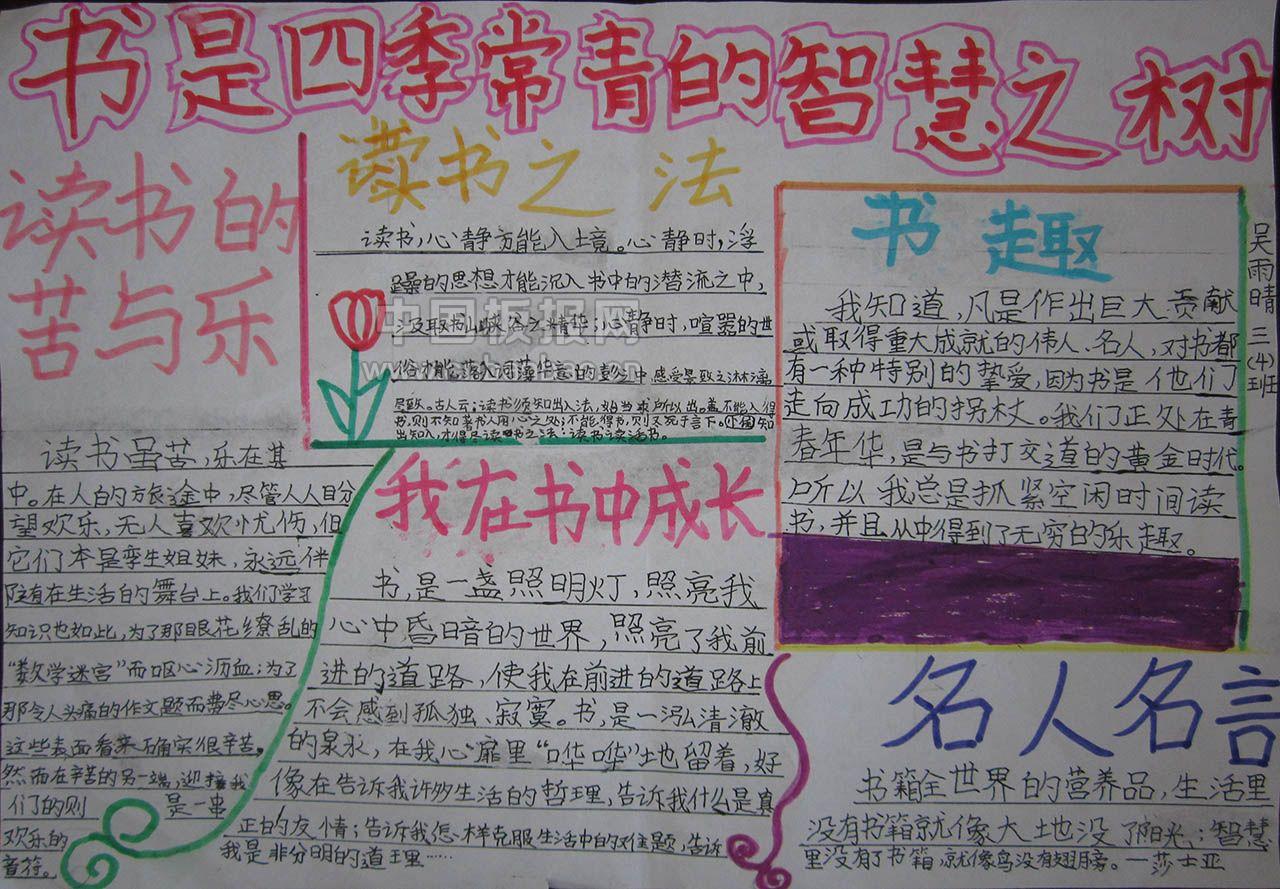 书是四季常青的智慧之树
读书的
苦与乐
读书虽苦,乐在其
中。在人的旅途中,尽管人人目分
望欢乐,无人喜欢忧伤,但
它们本是孪生姐妹,永远伴
陪在生活的舞台上。我们学习
知识也如此,为了那眼花缭乱的
“数学迷宫”而呕心沥血;为了
那令人头痛的作文题而费尽心思。
这些表面看来确实很辛苦。
然而在辛苦的另一端,迎接我
们的则 是一串
欢乐的
音符。
读书之法
读书,心静方能入境。心静时,浮
躁的思想才能沉入书中的潜流之中,
汲取书山 之精华;心静时,喧嚣的世
俗才能落入 的 之中 感受 淋漓
尽致。古人云:读书须知出入法,始当求所以出。盖不能入得
书,则不知 用心之处;不能 得书,则又死于言下。 知
出知入,才得尽读书之法:读书读活书。
书趣
我知道,凡是作出巨大贡献
或取得重大成就的伟人、名人,对书都
有一种特别的挚爱,因为书是他们
走向成功的拐杖。我们正处在青
春年华,是与书打交道的黄金时代。
所以我总是抓紧空闲时间读
书,并且从中得到了无穷的乐趣。
吴雨晴 三(4)班
我在书中成长
书,是一盏照明灯,照亮我
心中昏暗的世界,照亮了我前
进的道路,使我在前进的道路上
不会感到孤独、寂寞。书,是一泓清澈
的泉水,在我心扉里“哗哗”地留着,好
像在告诉我许多生活的哲理,告诉我什么是真
正的友情;告诉我怎样克服生活中的难题,告诉
我是非分明的道理……
名人名言
书籍全世界的营养品,生活里
没有书籍就像大地没了阳光;智慧
里没有了书籍,就像鸟没有翅膀。—莎士亚
中国板报网